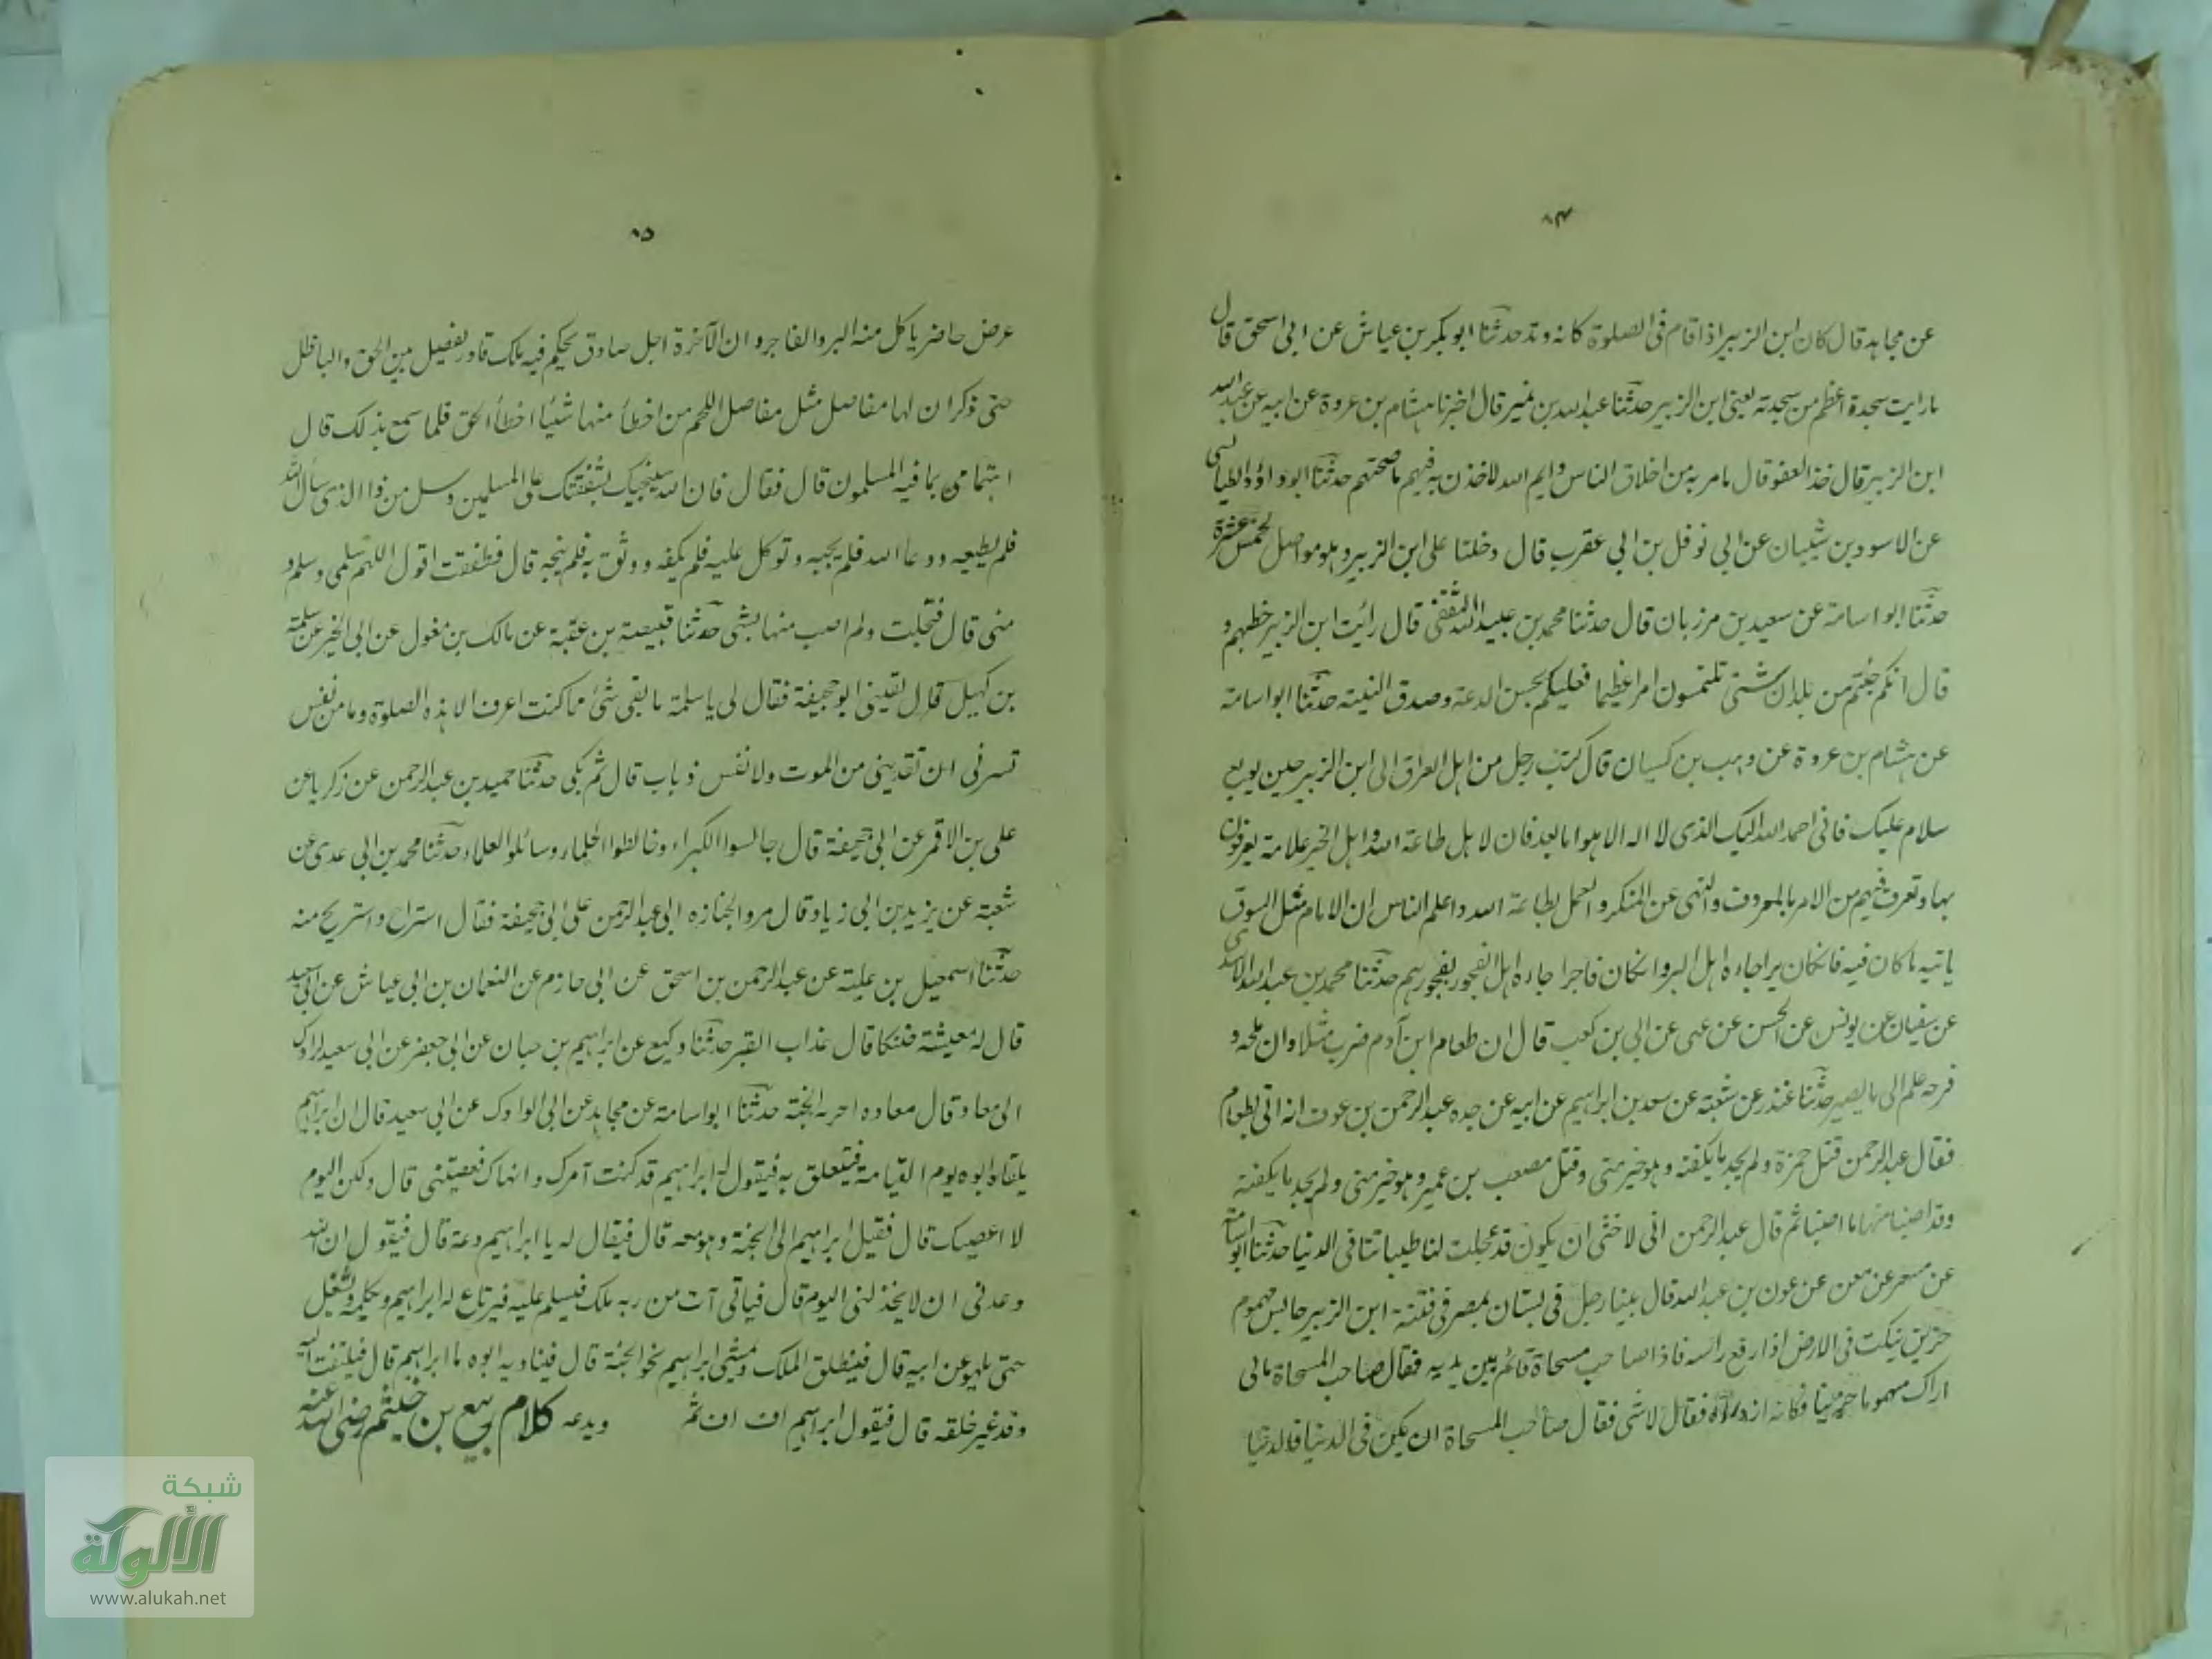 ٨٤
عن مجاهد قال كان ابن الزبير اذا قام فى الصلوة كانه وتد حدثنا ابو بكر بن عياش عن ابى اسحق قال
ما رايت سجدة اعظم من سجدته يعنى ابن الزبير حدثنا عبد الله بن نمير قال اخبرنا هشام بن عروة عن ابيه عن عبد الله
ابن الزبير قال خذ العفو قال ما امر به من اخلاق الناس وايم الله لاخذن به فيهم ما صحبتهم حدثنا ابو داؤد الطيالسى
عن الاسود بن شيبان عن ابى نوفل بن ابى عقرب قال دخلنا على ابن الزبير وهو مواصل لخمس عشرة
حدثنا ابو اسامة عن سعيد بن مرزبان قال حدثنا محمد بن عبيد الله الثقفى قال رائت ابن الزبير خطبهم و
قال انكم جئتم من بلدان شتى تلتمسون امرا عظيما فعليكم بحسن الدعة وصدق النية حدثنا ابو اسامة
عن هشام بن عروة عن وهب بن كيسان قال كتب رجل من اهل العراق الى ابن الزبير حين بويع
سلام عليك فانى احمد الله اليك الذى لا اله الا هو اما بعد فان لاهل طاعة الله واهل الخير علامة يعرفون
بها وتعرف فيهم من الامر بالمعروف والنهى عن المنكر والعمل بطاعة الله واعلم الناس ان الامام مثل السوق
ياتيه ما كان فيه فان كان برا جاءه اهل البر وان كان فاجرا جاءه اهل الفجور بفجورهم حدثنا محمد بن عبد الله الاسدى
عن سفيان عن يونس عن الحسن عن عتى عن ابى بن كعب قال ان طعام ابن آدم ضرب مثلا وان ملحه و
قزحه علم الى ما يصير حدثنا غندر عن شعبة عن سعد بن ابراهيم عن ابيه عن جده عبد الرحمن بن عوف انه اتى بطعام
فقال عبد الرحمن قتل حمزة ولم يجد ما يكفنه وهو خير منى وقتل مصعب بن عمير وهو خير منى ولم يجد ما يكفنه
وقد اصبنا منها ما اصبنا ثم قال عبد الرحمن انى لاخشى ان يكون قد عجلت لنا طيباتنا فى الدنيا حدثنا ابو اسامة
عن مسعر عن معن عن عون بن عبد الله قال بينا رجل فى بستان بمصر فى فتنة ابن الزبير جالس مهموم
حزين ينكت فى الارض اذ رفع راسه فاذا صاحب مسحاة قائم بين يديه فقال صاحب المسحاة مالى
اراك مهموما حزينا فكانه ازدراه فقال لا شى فقال صاحب المسحاة ان يكن فى الدنيا فالدنيا
٨٥
عرض حاضر ياكل منه البر والفاجر وان الآخرة اجل صادق يحكم فيه ملك قادر يفصل بين الحق والباطل
حتى ذكر ان لها مفاصل مثل مفاصل اللحم من اخطأ منها شيئا اخطأ الحق فلما سمع بذلك قال
اهتمامى بما فيه المسلمون قال فقال فان الله سينجيك بشفقتك على المسلمين وسل من ذا الذى سأل الله
فلم يعطيه ودعا الله فلم يجبه وتوكل عليه فلم يكفه ووثق به فلم ينجه قال فطفقت اقول اللهم سلمى وسلم
منى قال فتجلت ولم اصب منها بشى حدثنا قبيصة بن عقبة عن مالك بن مغول عن ابى الخير عن سلمة
بن كهيل قال لقينى ابو جحيفة فقال لى يا سلمة ما بقى شئ مما كنت اعرف الا هذه الصلوة وما من نفس
تسرنى ان تفدينى من الموت ولا نفس ذباب قال ثم بكى حدثنا حميد بن عبد الرحمن عن زكريا عن
على بن الاقمر عن ابى جحيفة قال جالسوا الكبراء وخالطوا الحلماء وسائلوا العلماء حدثنا محمد بن ابى عدى عن
شعبة عن يزيد بن ابى زياد قال مروا بجنازه ابى عبد الرحمن على ابى جحيفة فقال استراح واستريح منه
حدثنا اسمعيل بن علية عن عبد الرحمن بن اسحق عن ابى حازم عن النعمان بن ابى عياش عن ابى سعيد
قال له معيشة ضنكا قال عذاب القبر حدثنا وكيع عن ابراهيم بن حبان عن ابى جعفر عن ابى سعيد لرادك
الى معاد قال معاده اخرته الجنة حدثنا ابو اسامة عن مجالد عن ابى الوادك عن ابى سعيد قال ان ابراهيم
يلقاه ابوه يوم القيامة فيتعلق به فيقول له ابراهيم قد كنت آمرك وانهاك فعصيتنى قال ولكن اليوم
لا اعصيك قال فقيل ابراهيم الى الجنة وهو معه قال فيقال له يا ابراهيم دعه قال فيقول ان الله
وعدنى ان لا يخذلنى اليوم قال فياتى آت من ربه ملك فيسلم عليه فيرتاع له ابراهيم ويكلمه ويشغل
حتى يلهو عن ابيه قال فينطلق الملك ويمشى ابراهيم نحو الجنة قال فيناديه ابوه يا ابراهيم قال فيلتفت اليه
وقد غير خلقه قال فيقول ابراهيم اف اف ثم ويدعه كلام ربيع بن خيثم رضى الله عنه
شبكة
الألوكة
www.alukah.net